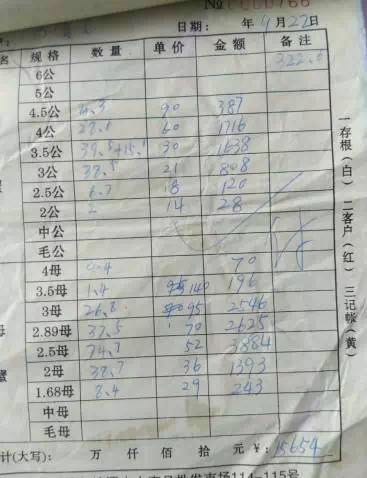 № 0000766
日期： 年 9 月 22 日
规格 数量 单价 金额 备注
6公 322.
5公
4.5公 4.3 90 387
4公 60 1716
3.5公 30 1638
3公 38.5 21 808
2.5公 6.7 18 120
2公 2 14 28
中公
毛公
4母 70
3.5母 1.4 140 196
3母 26.8 95 2546
2.89母 37.5 70 2625
2.5母 74.7 52 3884
2母 38.7 36 1393
1.68母 8.4 29 243
中母
毛母
计(大写)： 万 仟 佰 拾 元 ¥： 15654
114-115号
一存根（白） 二客户（红） 三记帐（黄）